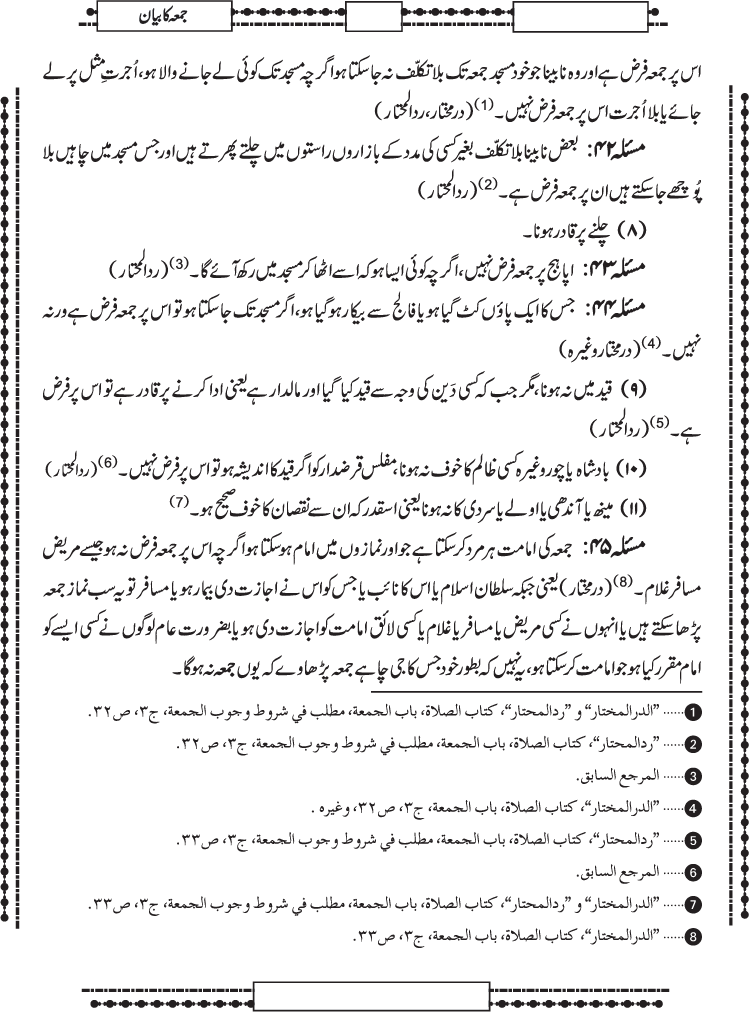 جمعہ کا بیان
اس پر جمعہ فرض ہے اور وہ نابینا جو خود مسجد جمعہ تک بلا تکلّف نہ جا سکتا ہو اگرچہ مسجد تک کوئی لے جانے والا ہو، اُجرتِ مثل پر لے
جائے یا بلا اُجرت اس پر جمعہ فرض نہیں۔ (1) (درمختار، ردالمحتار)
مسئلہ ۴۲: بعض نابینا بلا تکلّف بغیر کسی کی مدد کے بازاروں راستوں میں چلتے پھرتے ہیں اور جس مسجد میں چاہیں بلا
پُوچھے جا سکتے ہیں ان پر جمعہ فرض ہے۔ (2) (ردالمحتار)
(۸) چلنے پر قادر ہونا۔
مسئلہ ۴۳: اپاہج پر جمعہ فرض نہیں، اگرچہ کوئی ایسا ہو کہ اسے اٹھا کر مسجد میں رکھ آئے گا۔ (3) (ردالمحتار)
مسئلہ ۴۴: جس کا ایک پاؤں کٹ گیا ہو یا فالج سے بیکار ہو گیا ہو، اگر مسجد تک جا سکتا ہو تو اس پر جمعہ فرض ہے ورنہ
نہیں۔ (4) (درمختار وغیرہ)
(۹) قید میں نہ ہونا، مگر جب کہ کسی دَین کی وجہ سے قید کیا گیا اور مالدار ہے یعنی ادا کرنے پر قادر ہے تو اس پر فرض
ہے۔ (5) (ردالمحتار)
(۱۰) بادشاہ یا چور وغیرہ کسی ظالم کا خوف نہ ہونا، مفلس قرضدار کو اگر قید کا اندیشہ ہو تو اس پر فرض نہیں۔ (6) (ردالمحتار)
(۱۱) مینھ یا آندھی یا اولے یا سردی کا نہ ہونا یعنی اسقدر کہ ان سے نقصان کا خوف صحیح ہو۔ (7)
مسئلہ ۴۵: جمعہ کی امامت ہر مرد کر سکتا ہے جو اور نمازوں میں امام ہو سکتا ہو اگرچہ اس پر جمعہ فرض نہ ہو جیسے مریض
مسافر غلام۔ (8) (درمختار) یعنی جبکہ سلطان اسلام یا اس کا نائب یا جس کو اس نے اجازت دی بیمار ہو یا مسافر تو یہ سب نماز جمعہ
پڑھا سکتے ہیں یا انہوں نے کسی مریض یا مسافر یا غلام یا کسی لائق امامت کو اجازت دی ہو یا بضرورت عام لوگوں نے کسی ایسے کو
امام مقرر کیا ہو جو امامت کر سکتا ہو، یہ نہیں کہ بطور خود جس کا جی چاہے جمعہ پڑھاوے کہ یوں جمعہ نہ ہوگا۔
1 ...... ”الدرالمختار“ و ”ردالمحتار“، کتاب الصلاة، باب الجمعة، مطلب في شروط وجوب الجمعة، ج۳، ص۳۲.
2 ...... ”ردالمحتار“، کتاب الصلاة، باب الجمعة، مطلب في شروط وجوب الجمعة، ج۳، ص۳۲.
3 ...... المرجع السابق.
4 ...... ”الدرالمختار“، کتاب الصلاة، باب الجمعة، ج۳، ص۳۲، وغیرہ .
5 ...... ”ردالمحتار“، کتاب الصلاة، باب الجمعة، مطلب في شروط وجوب الجمعة، ج۳، ص۳۳.
6 ...... المرجع السابق.
7 ...... ”الدرالمختار“ و ”ردالمحتار“، کتاب الصلاة، باب الجمعة، مطلب في شروط وجوب الجمعة، ج۳، ص۳۳.
8 ...... ”الدرالمختار“، کتاب الصلاة، باب الجمعة، ج۳، ص۳۳.